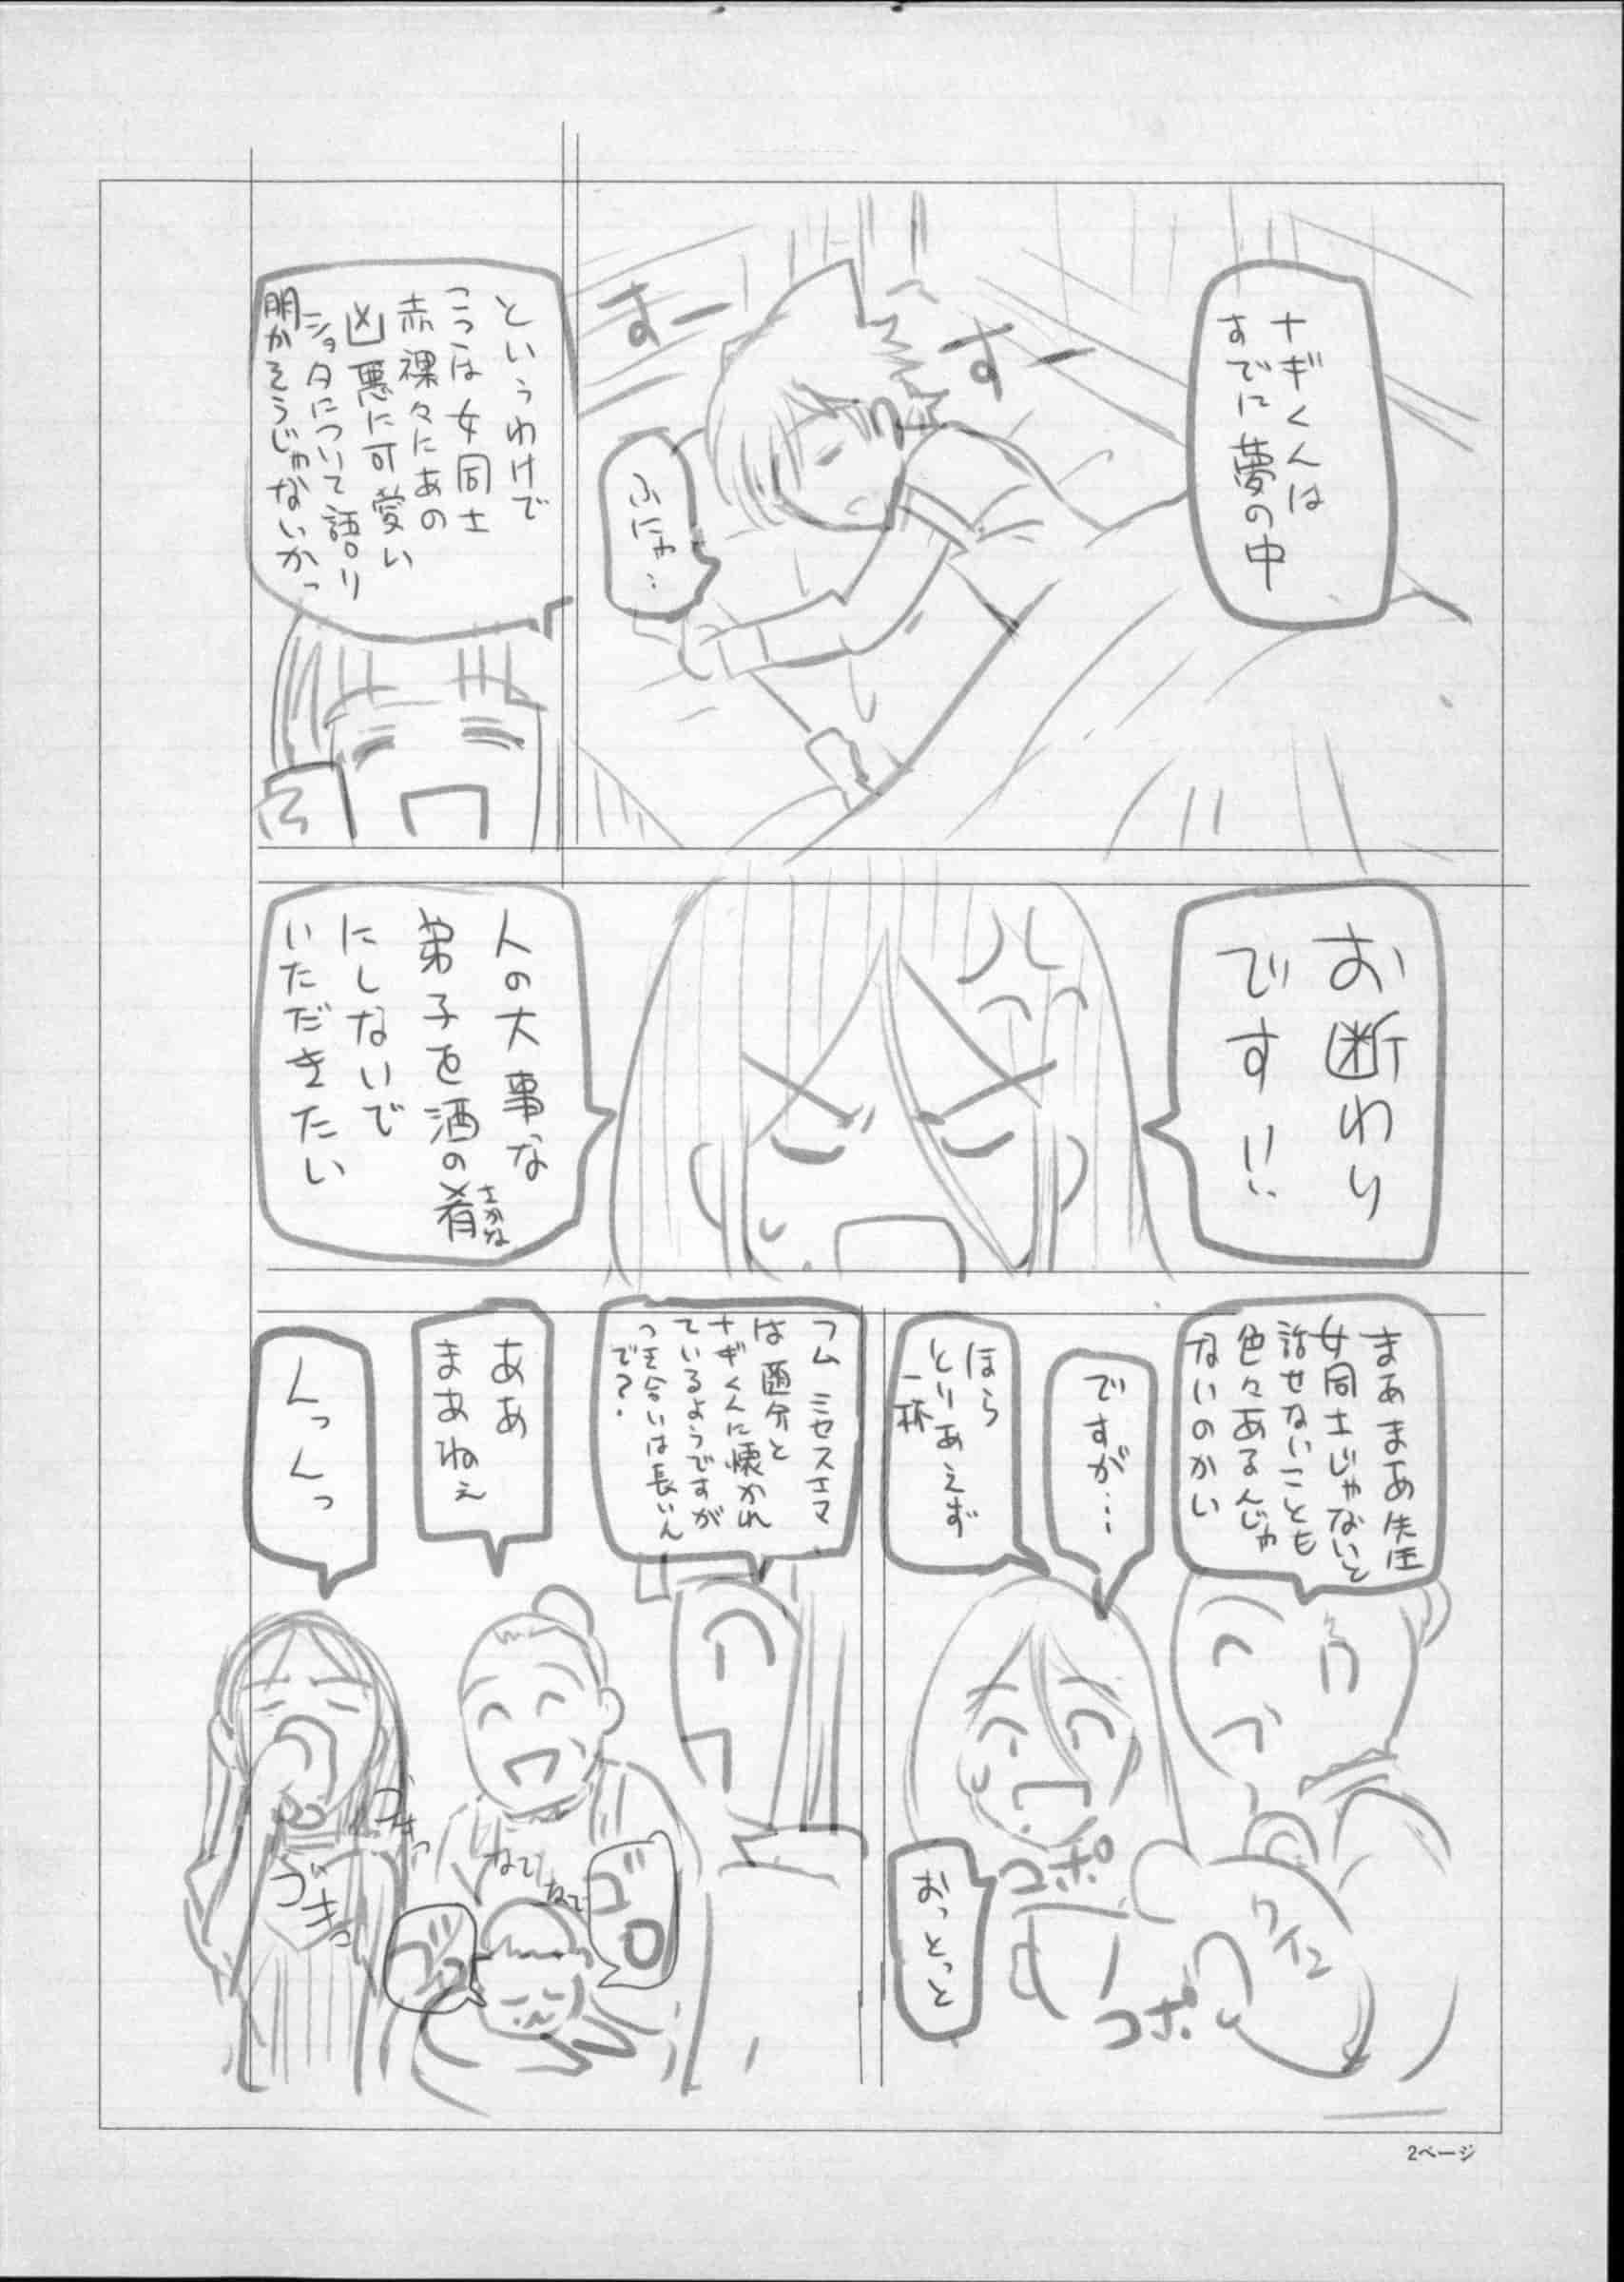 ナギくんは
すでに夢の中
すー
すー
ふにゃ…
というわけで
こっは女同士
赤裸々にあの
凶悪に可愛い
ショタについて語り
明かそうじゃないかっ
お断わり
です!!
人の大事な
弟子を酒の肴
さかな
にしないで
いただきたい
まあまあ先生
女同士じゃないと
話せないことも
色々あるんじゃ
ないのかい
ですが…
ほら
とりあえず
一杯
コポ
おっとっと
ワイン
コポ
フム ミセスエマ
は随分と
ナギくんに懐かれ
ているようですが
つき合いは長いん
で?
ああ
まあねぇ
んっんっ
なで
なで
ゴロ
2ページ